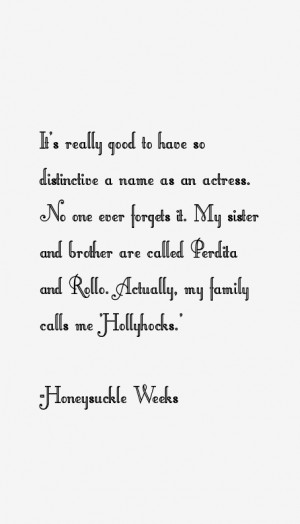 It's really good to have so
distinctive a name as an actress.
No one ever forgets it. My sister
and brother are called Perdita
and Rollo. Actually, my family
calls me 'Hollyhocks.'
-Honeysuckle Weeks